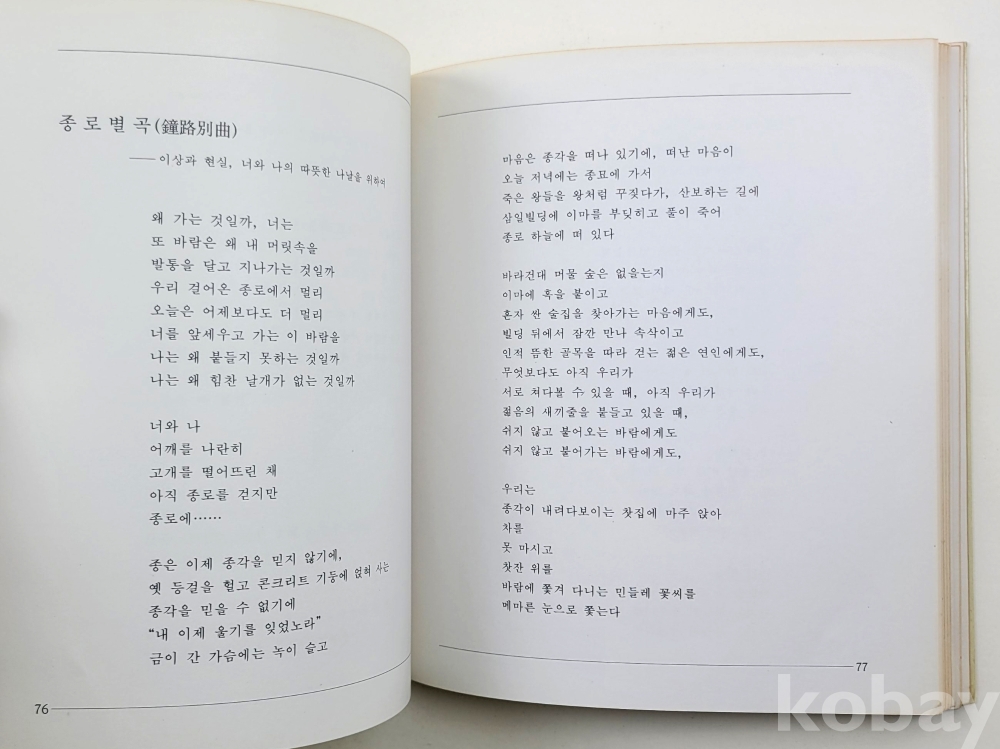 종로별곡(鐘路別曲)
── 이상과 현실, 너와 나의 따뜻한 나날을 위하여
왜 가는 것일까, 너는
또 바람은 왜 내 머릿속을
발통을 달고 지나가는 것일까
우리 걸어온 종로에서 멀리
오늘은 어제보다도 더 멀리
너를 앞세우고 가는 이 바람을
나는 왜 붙들지 못하는 것일까
나는 왜 힘찬 날개가 없는 것일까
너와 나
어깨를 나란히
고개를 떨어뜨린 채
아직 종로를 걷지만
종로에……
종은 이제 종각을 믿지 않기에,
옛 등걸을 헐고 콘크리트 기둥에 얹혀 사는
종각을 믿을 수 없기에
“내 이제 울기를 잊었노라”
금이 간 가슴에는 녹이 슬고
76
마음은 종각을 떠나 있기에, 떠난 마음이
오늘 저녁에는 종묘에 가서
죽은 왕들을 왕처럼 꾸짖다가, 산보하는 길에
삼일빌딩에 이마를 부딪히고 풀이 죽어
종로 하늘에 떠 있다
바라건대 머물 숲은 없을는지
이마에 혹을 붙이고
혼자 싼 술집을 찾아가는 마음에게도,
빌딩 뒤에서 잠깐 만나 속삭이고
인적 뜸한 골목을 따라 걷는 젊은 연인에게도,
무엇보다도 아직 우리가
서로 쳐다볼 수 있을 때, 아직 우리가
젊음의 새끼줄을 붙들고 있을 때,
쉬지 않고 불어오는 바람에게도
쉬지 않고 불어가는 바람에게도,
우리는
종각이 내려다보이는 찻집에 마주 앉아
차를
못 마시고
찻잔 위를
바람에 쫓겨 다니는 민들레 꽃씨를
메마른 눈으로 쫓는다
77
kobay